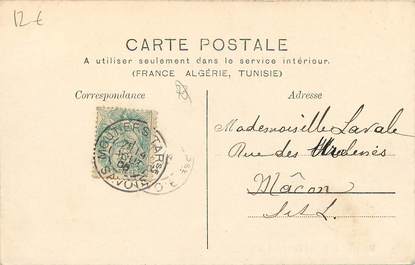 12 €
CARTE POSTALE
A utiliser seulement dans le service intérieur.
(FRANCE ALGÉRIE, TUNISIE)
Correspondance
Adresse
MOUTIERS TAR
SAVOIE
Mademoiselle Lavale
Rue des
Mâcon
S et L.